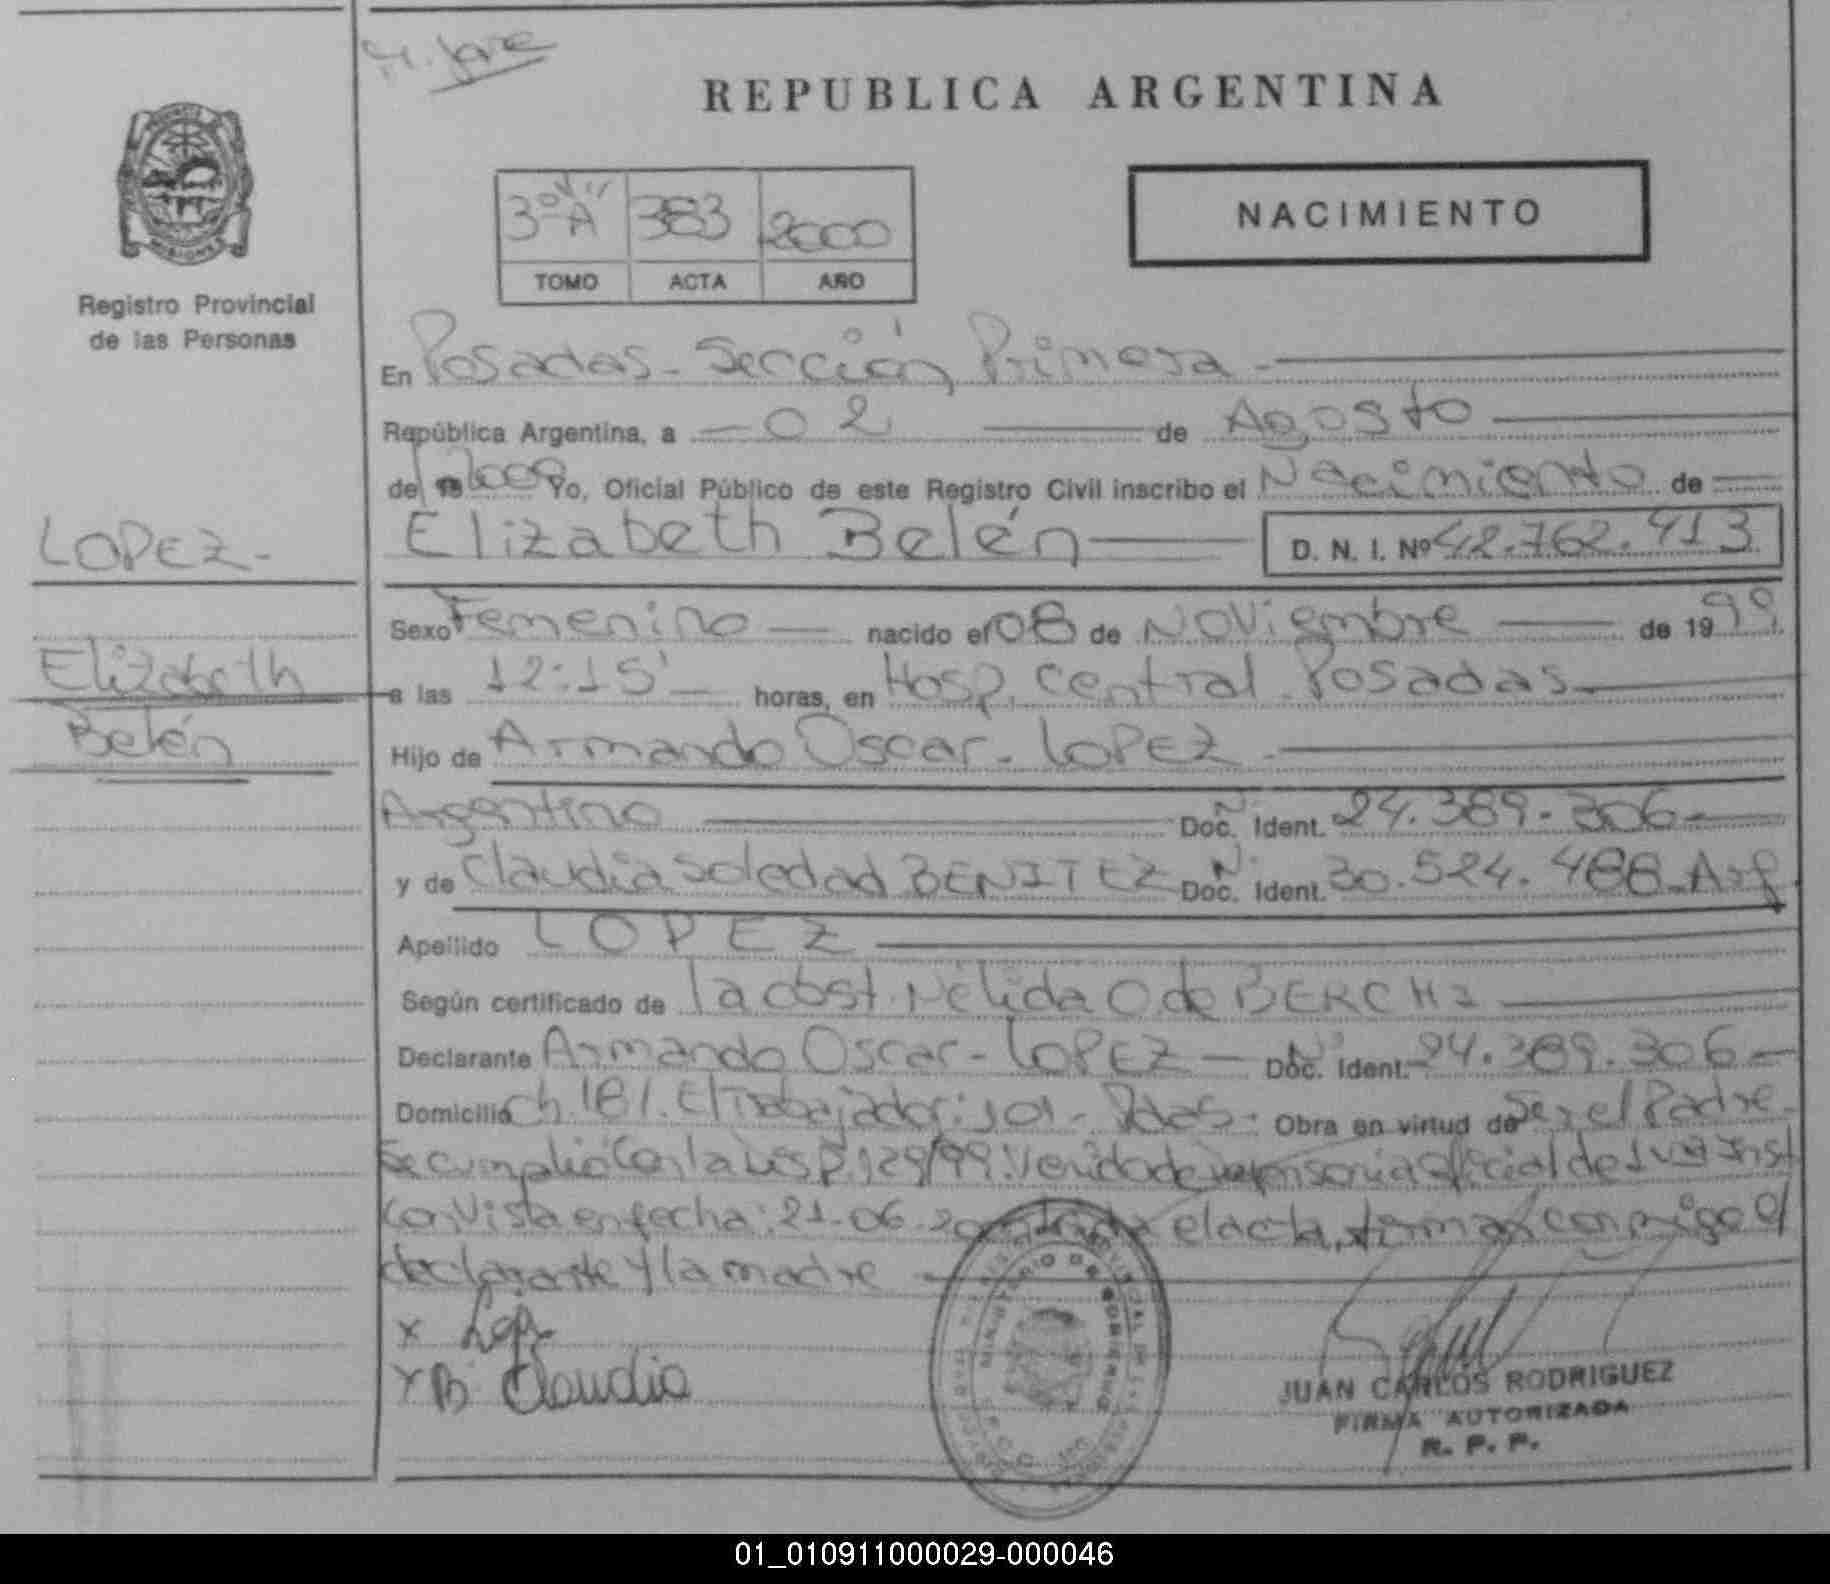 REPUBLICA ARGENTINA
3º "A" 383 2000
TOMO ACTA AÑO
NACIMIENTO
MISIONES
Registro Provincial
de las Personas
En Posadas - Sección Primera -
República Argentina, a - 02 de Agosto
de 2000 Yo, Oficial Público de este Registro Civil inscribo el Nacimiento de
LOPEZ -
Elizabeth Belén D. N. I. Nº 42.762.413
Sexo Femenino nacido el 08 de Noviembre de 1999
Elizabeth
Belén
a las 12:15' horas, en Hosp. Central Posadas
Hijo de Armando Oscar - LOPEZ -
Argentino Doc. Ident. 24.389.306 -
y de Claudia Soledad BENITEZ Doc. Ident. 30.524.488 - Arg
Apellido LOPEZ
Según certificado de la obst. Nélida O. de BERCHI
Declarante Armando Oscar - LOPEZ - Doc. Ident. 24.389.306 -
Domicilio Ch. 181. El Trabajador: 101 - Pdas - Obra en virtud de Ser el Padre -
Se cumplió con la Disp. 129/99. Venido de oficial de Inst
con Vista en fecha: 21-06 el acta, firman conmigo el
declarante y la madre
x
x B. Claudia
MINISTERIO DE GOBIERNO
JUAN CARLOS RODRIGUEZ
FIRMA AUTORIZADA
R. P. P.
01_010911000029-000046